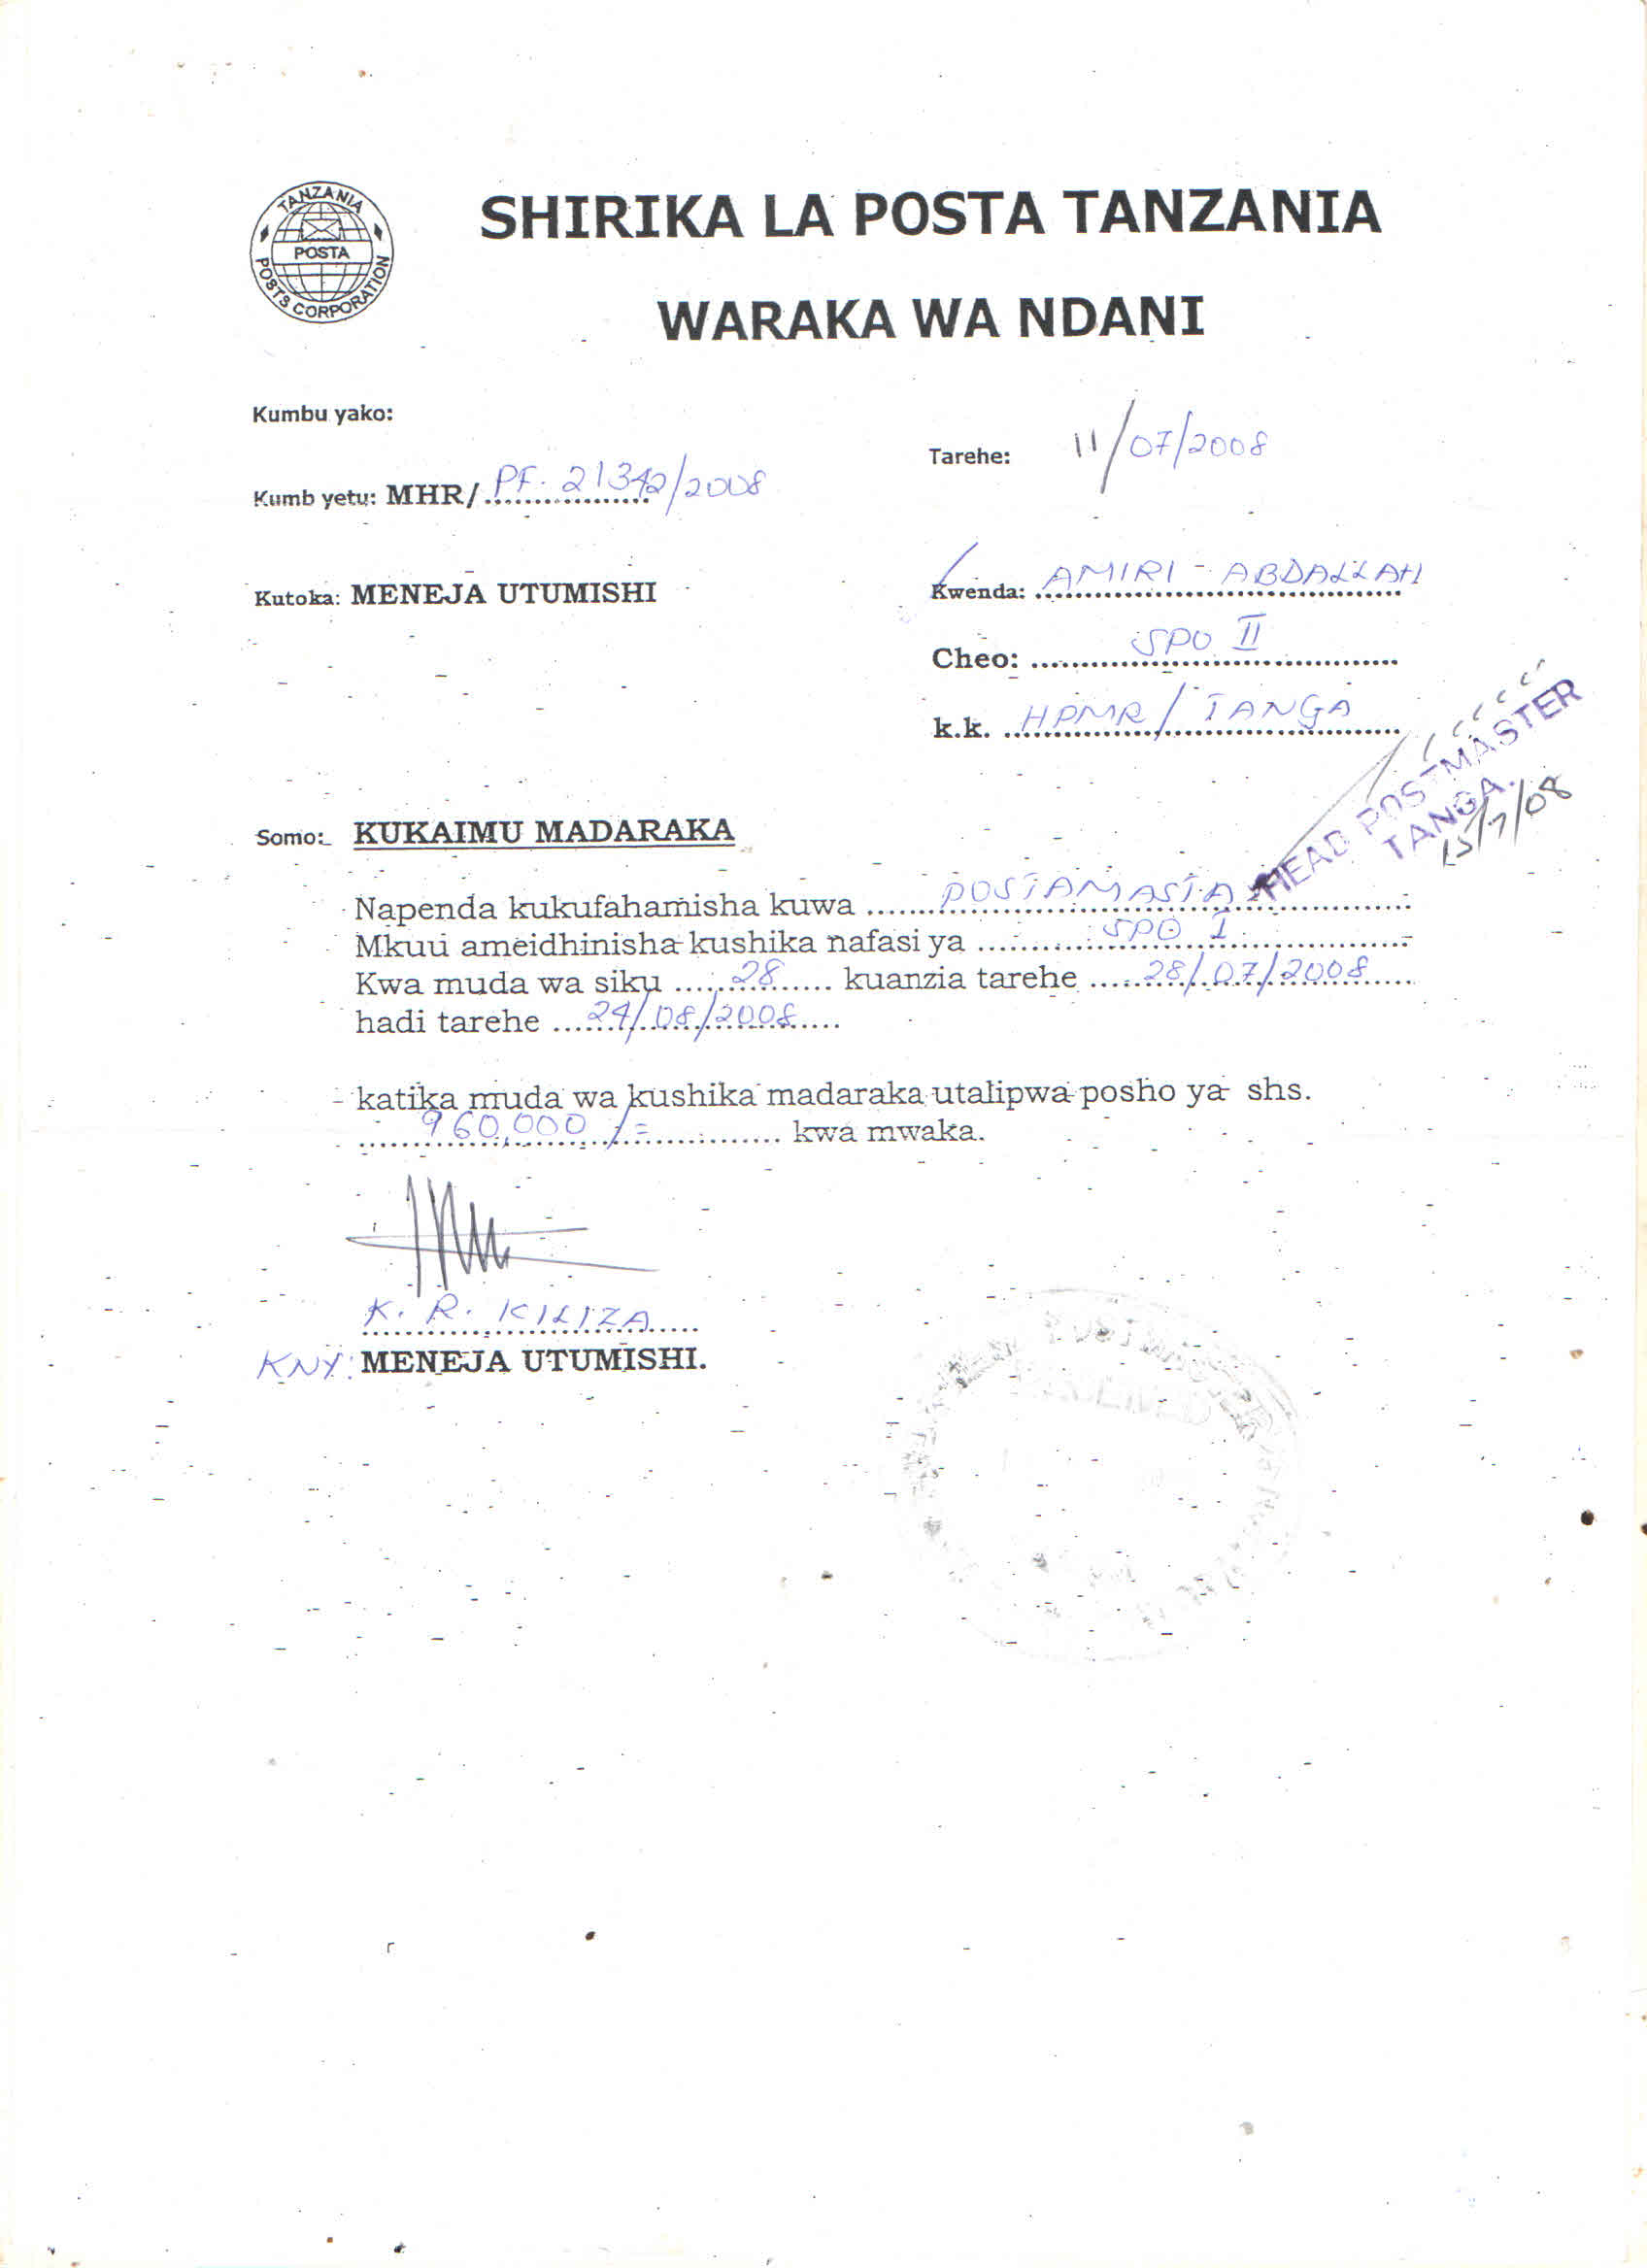 TANZANIA
POSTA
POSTS CORPORATION
SHIRIKA LA POSTA TANZANIA
WARAKA WA NDANI
Kumbu yako:
Tarehe: 11/07/2008
Kumb yetu: MHR/ PF. 21342/2008
Kutoka: MENEJA UTUMISHI
Kwenda: AMIRI - ABDALLAH
Cheo: SPO II
k.k. HPMR/TANGA
HEAD POSTMASTER
TANGA.
15/7/08
Somo: KUKAIMU MADARAKA
Napenda kukufahamisha kuwa POSTAMASTA
Mkuu ameidhinisha kushika nafasi ya SPO I
Kwa muda wa siku 28 kuanzia tarehe 28/07/2008
hadi tarehe 24/08/2008
katika muda wa kushika madaraka utalipwa posho ya shs.
960,000/= kwa mwaka.
K. R. KILIZA
KNY: MENEJA UTUMISHI.